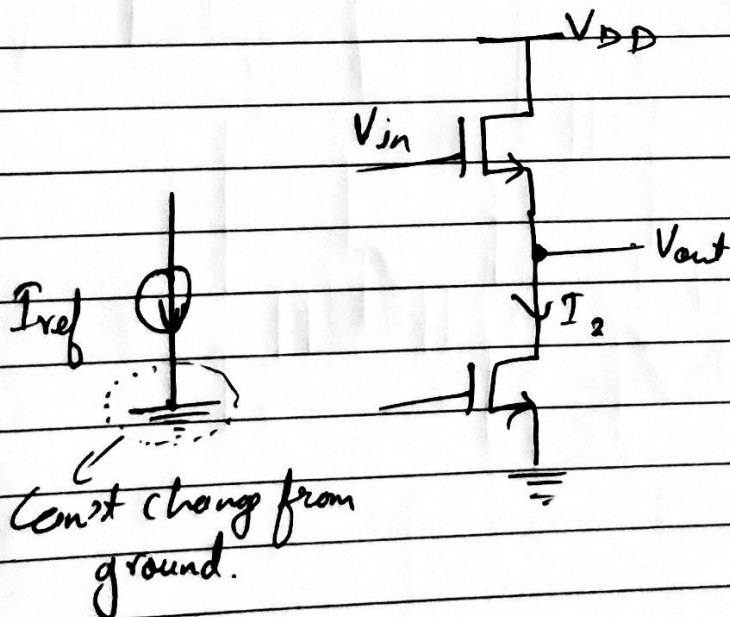 V_DD
V_in
V_out
I_ref
I_2
Can't change from
ground.